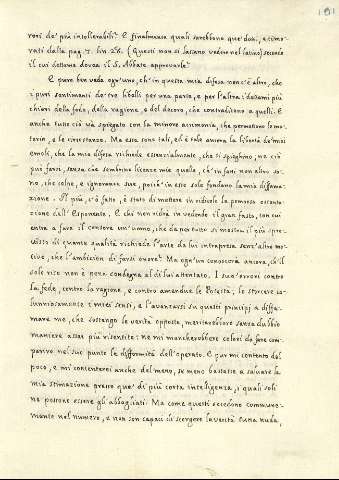 191
rori de' più intollerabili? E finalmente quali sarebbono que' doni, e timo-
rati dalla pag. 7. lin. 26. (Questi non si lasano vedere nel latino) secondo
il cui dettame dovea il S. Abbate approvarle?
E pure ben veda ogn'uno, ch'in questa mia difesa non c'è altro, che
i puri sentimenti de' tre libelli per una parte, e per l'altra i dettami più
chiari della fede, della ragione, e del decoro, che contradicono a quelli. E
anche tutto ciò và spiegato con la minore acrimonia, che permettono la ma-
teria, e le circostanze. Ma esse sono tali, ed è tale ancora la libertà de' miei
emoli, che la mia difesa richiede essenzialmente, che si spieghino, ne ciò
può farsi, senza che sembrino licenze mie quelle, ch'in fatti non altro so-
no, che colpe, e ignoranze sue, poiche in esse solo fondano la mia diffama-
zione. Il più, c'ò fatto, è stato di mettere in ridicolo la pomposa ostenta-
zione dell'Esponente. E chi non rida in vedendo il gran fasto, con cui
entra a fare il censore un'uomo, che da per tutto si mostra il più spro-
visto di quante qualità richiede l'arte da lui intrapresa senz'altro mo-
tivo, che l'ambizion di farsi onore? Ma ogn'un conoscerà ancora, ch'il
solo riso non è pena condegna al di lui attentato. I suoi errori contro
la fede, contro la ragione, e contro amendue le Potestà, lo storcere ca-
lunniosamente i miei sensi, e l'avanzarsi su questi principj a diffa-
mare me, che sostengo le verità opposte, meritarebbero senza dubbio
maniere assai più risentite: ne mi mancherebbero colori da fare com-
parire nel suo punto la difformità dell'operato. E pur mi contento del
poco, e mi contenterei anche del meno, se meno bastasse a salvare la
mia stimazione presso que' di più corta intelligenza, i quali soli
ne possono essere gli abbagliati. Ma come questi eccedono commune-
mente nel numero, e non son capaci di scorgere la verità tutta nuda,